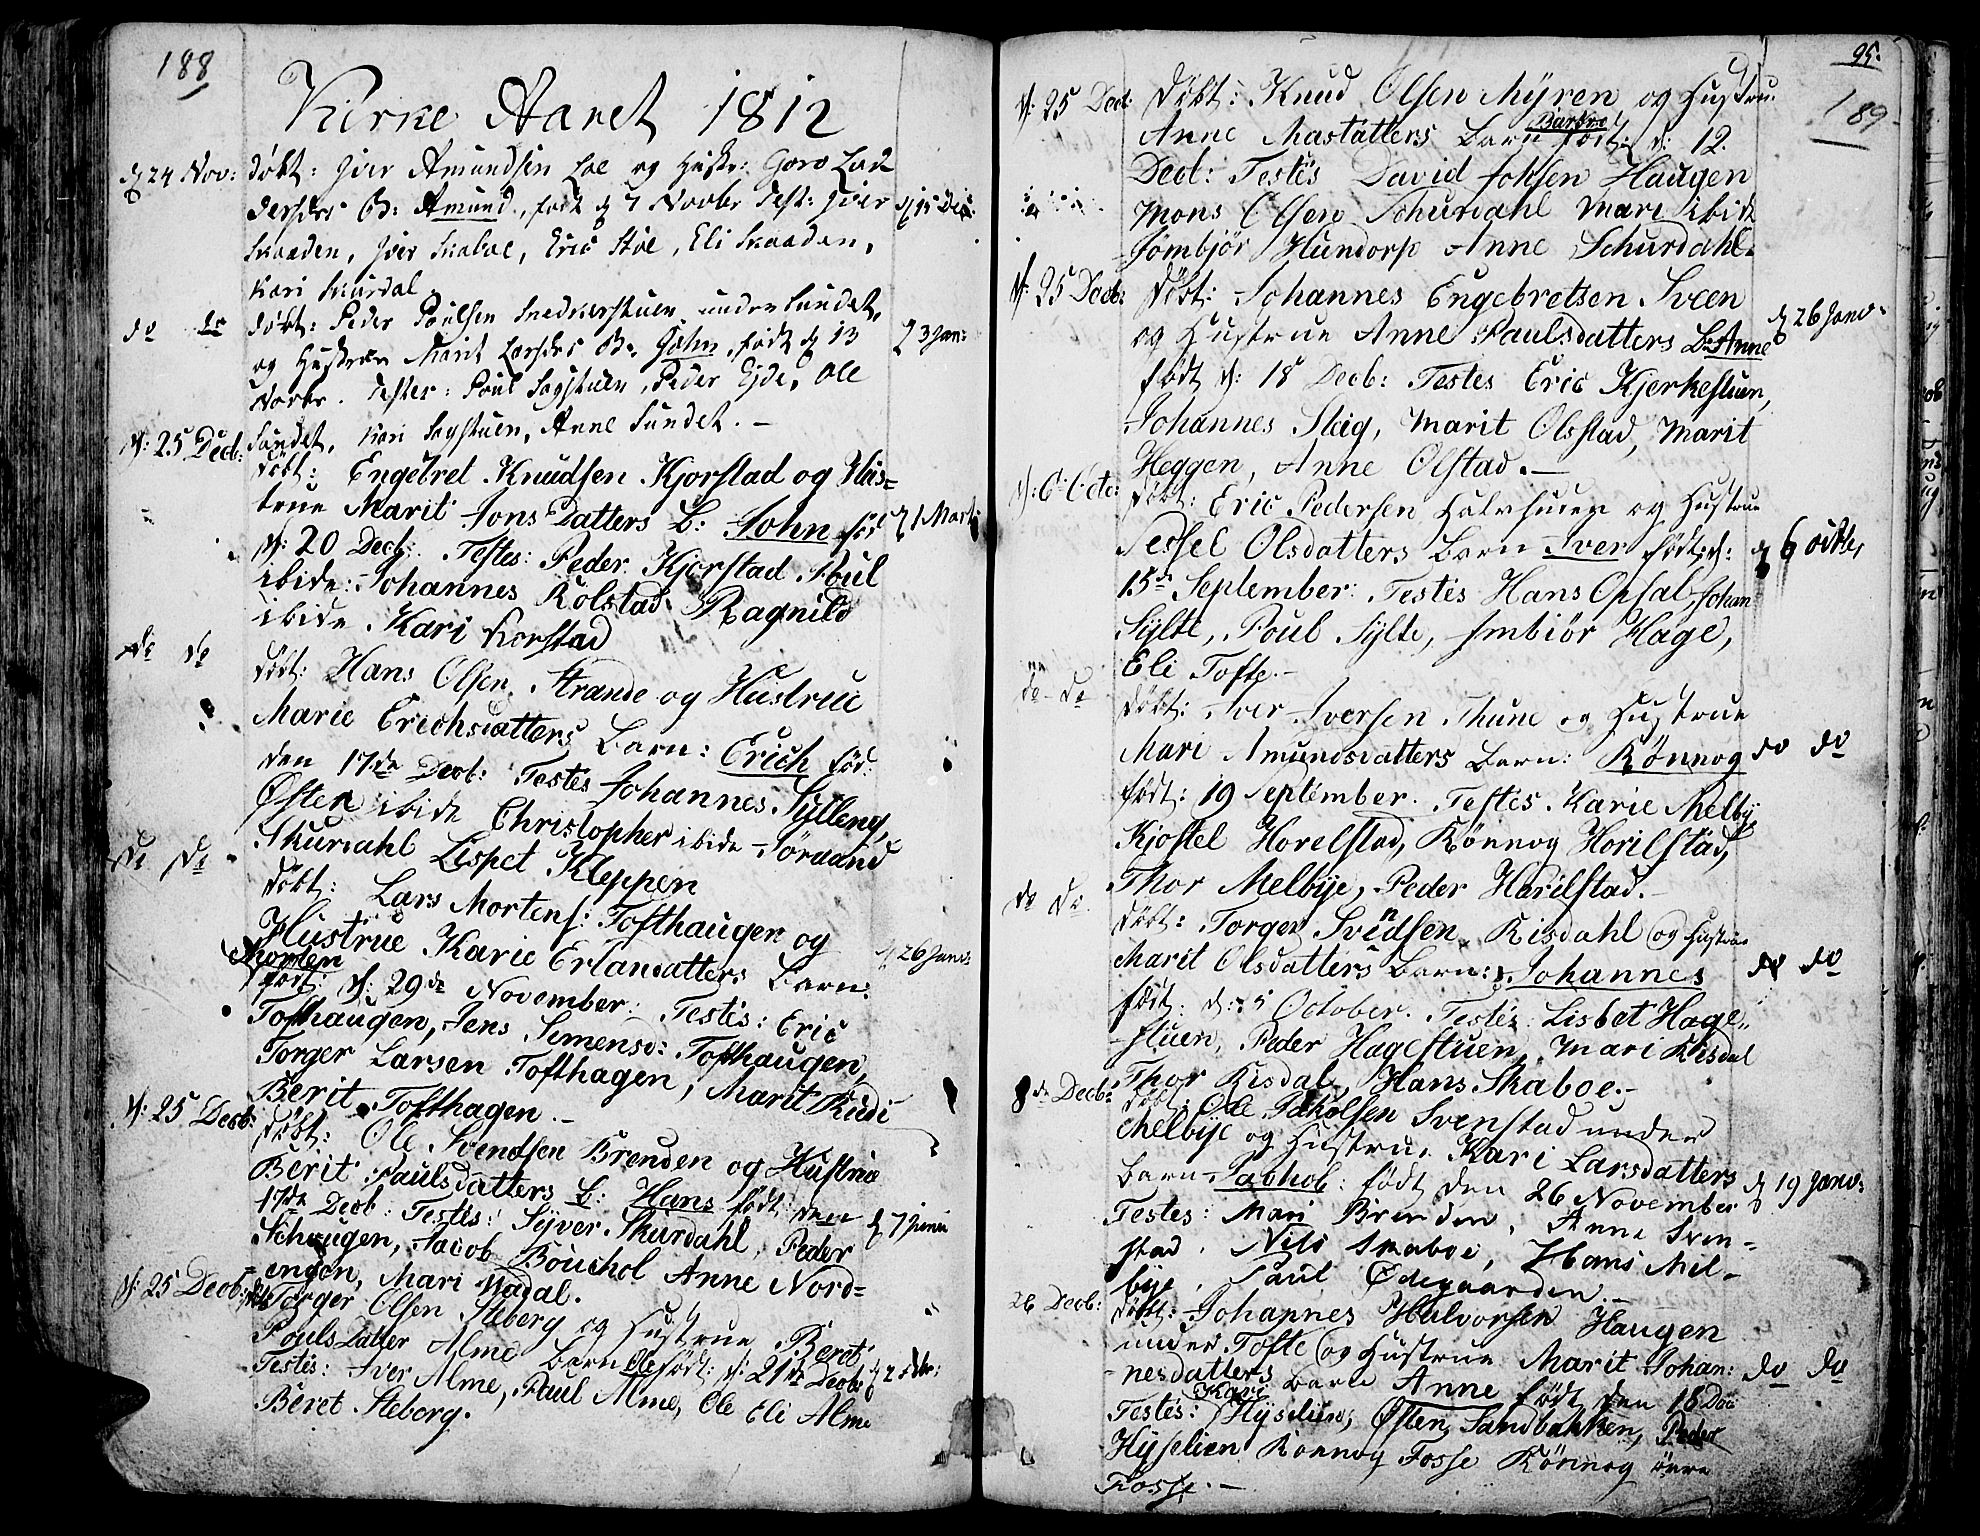 188
Kirke Aaret 1812
d 24 Nov: Døbt: Iver Amundsen Loe og Hustr: Goro Lar
dersdrs B: Amund, født d 7 Novbr Test: Iver d 15 Dec:
Skaaden, Iver Skaboe, Eric Stoe, Eli Skaaden,
Kari Skurdal.
do do Døbt: Peder Poulsen Snedkerstuen under Sundet,
og Hustrue Marit Larsdrs B. John, født d 13 d 3 Jan:
Novbr. Testes: Poul Sagstuen, Peder Eide, Ole
Sundet, Kari Sagstuen, Anne Sundet. –
d: 25 Decb: Døbt: Engebret Knudsen Kjorstad og Hus=
true Marit Jons Datters B: John fød d 1 Mart:
d: 20 Decb: Testes: Peder Kjorstad Poul
ibide: Johannes Rolstad Ragnild
ibide Kari Korstad
do do Døbt: Hans Olsen Strande og Hustrue
Marie Erichsdatters Barn: Erich fød:
den 17de Decb: Testes Johannes Sylleng,
Østen ibide Christopher ibide Jøraand
Skurdahl Lispet Kleppen
do do Døbt: Lars Mortens: Tofthaugen og
Hustrue Karie Erlandatters Barn: d 26 Janv:
Morten
født: d: 29de November: Testis: Eric
Tofthaugen, Jens Simensd: Tofthaugen,
Torger Larsen Tofthagen, Marit Rudi
Berit Tofthagen. –
d: 25 Decb: Døbt: Ole Svendsen Brenden og Hustrue
Berit Paulsdatters B: Hans født den
17de Decb: Testis: Syver Skurdahl, Peder d 7 Junii
Schougen, Jacob Bouchol Anne Nord=
=engen, Mari Wadal.
d: 25 Decb: Døbt Torger Olsen Steberg og Hustrue Beret
Pouls Datter Alme Barn Ole født: d: 21de Decb:
Testis: Iver Alme, Paul Alme, Ole Eli Alme
Beret Steborg.
95.
189
d: 25 Dec: Døbt: Knud Olsen Myren og Hustru
Anne Mastatters Barn Barbro født: d: 12.
Decb: Testis David Johsen Haugen
Mons Olsen Schurdahl Mari ibid
Jømbjør Hundorp Anne Schurdahl.
d: 25 Decb: Døbt: Johannes Engebretsen Sveen
og Hustrue Anne Paulsdatters B: Anne d 26 Janv:
født d: 18 Decb: Testes Eric Kjerkestuen,
Johannes Sleig, Marit Olsstad, Marit
Heggen, Anne Olstad. –
d: 6 Octo: Døbt: Eric Pedersen Halvstuen og Hustrue
Sessel Olsdatters Barn Iver født: d: d 6 Octbr,
15de September: Testis Hans Opsal, Johan
Sylte, Poul Sylte, Imbiør Hage,
Eli Tofte. –
do do Døbt: Iver Iversen Thune og Hustrue
Mari Amundsdatters Barn: Rønnog do do
født: 19 September. Testes. Karie Melby,
Kjostel Horelstad, Rønnog Horilstad,
Thor Melbye, Peder Harilstad. –
do do. Døbt: Torger Svendsen Risdahl og Hustrue
Marit Olsdatters Barn: Johannes do do
født: d: 5 October. Testis: Lisbet Hage=
=stuen, Peder Hagestuen, Mari Risdal
Thor Risdal, Hans Skaboe. –
8de Decb: Døbt: Ole Svenstad under
Melbye og Hustrue Kari Larsdatters
Barn Jackob: født den 26 November d 19 Janv:
Testes: Mari Brenden, Anne Sven=
stad, Nils Skaboe, Hans Mel=
bye, Paul Ødegaarden. –
26 Decb: Døbt: Johannes Halvorsen Haugen
under Tofte og Hustrue Marit Johan: do do
=nesdatters Barn Anne født den 18 Dec
Testis: Kari Hyselien, Østen Sandbakken, Peder
Hysselien Rønnog Fosse Rønnog øvre
Fosse. –